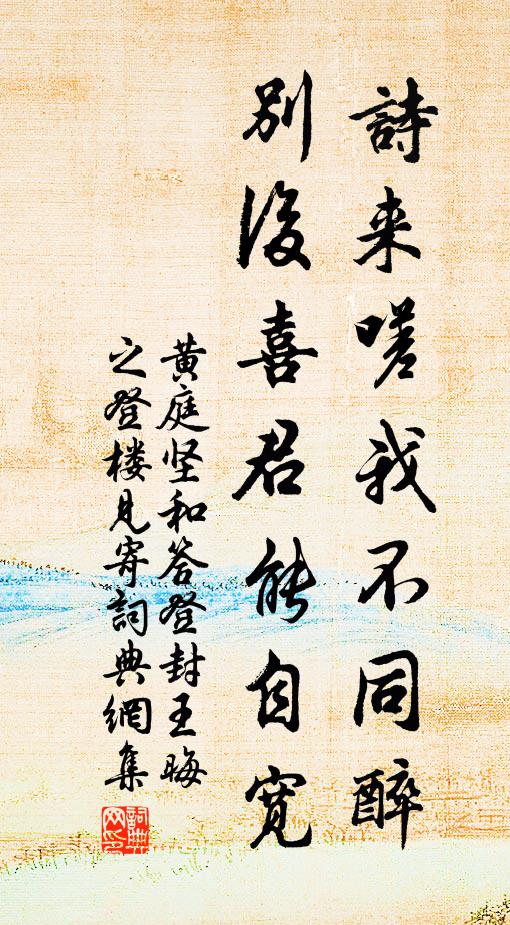 詩来嗟我不同醉
別後喜君能自寬
黄庭坚和答登封王晦
之登楼見寄詞典網集
詞典
网印